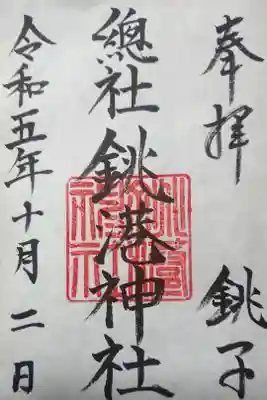 奉拝 銚子
總社 銚港神社
令和五年十月二日